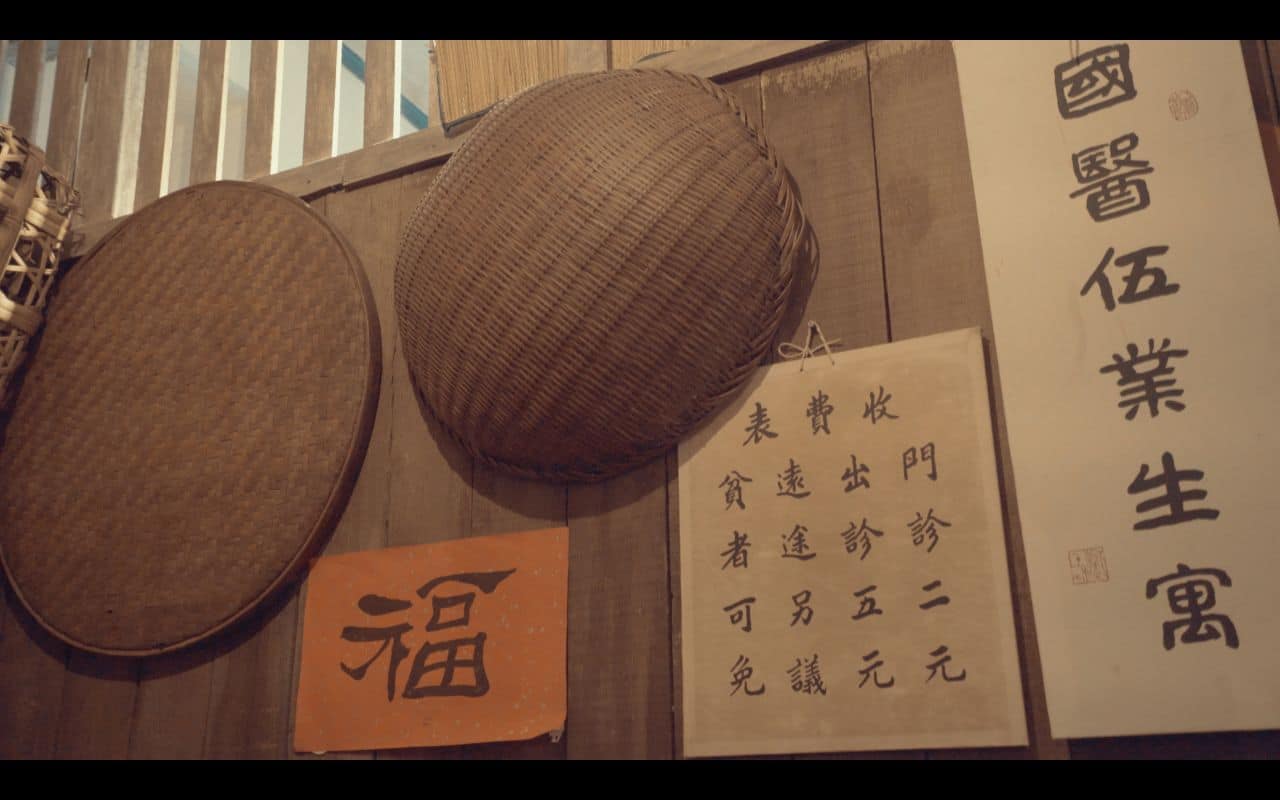 國醫伍業生寓
收費表
門診二元
出診五元
遠途另議
貧者可免
福